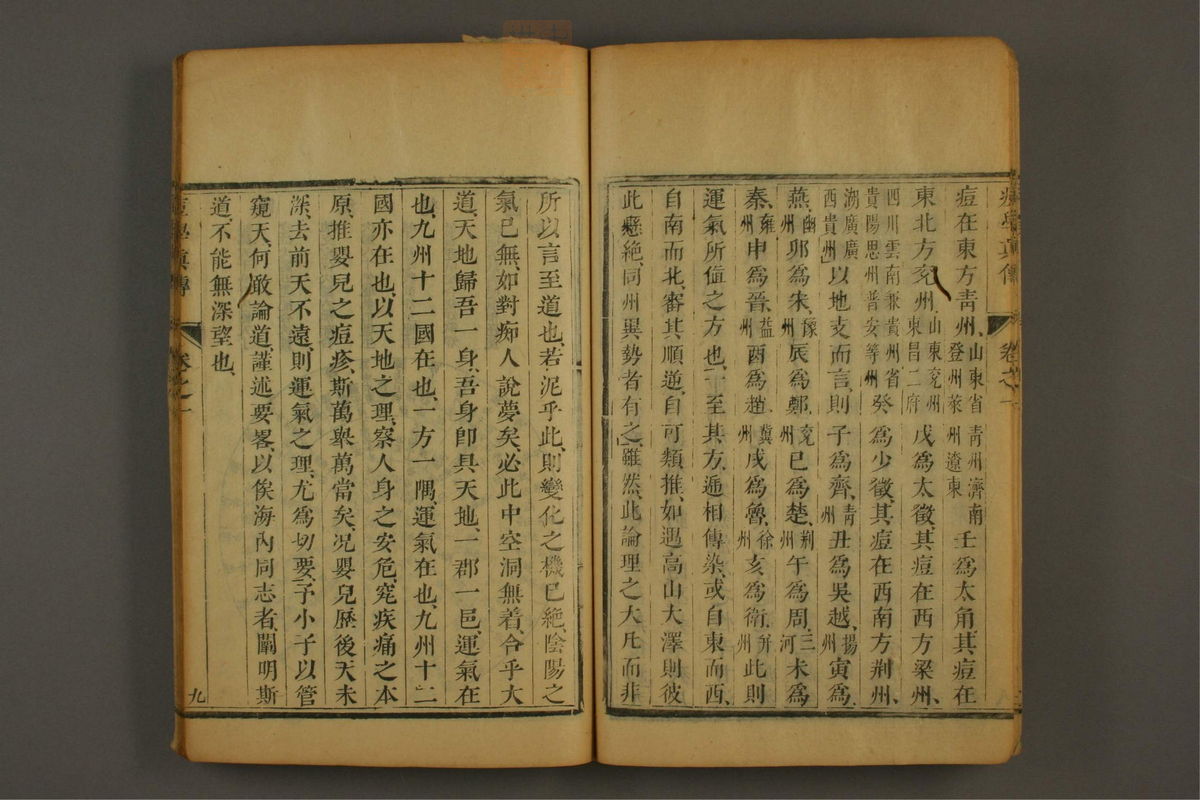 痘學真傳　卷之一
痘在東方青州、山東省青州濟南登州萊州遼東壬爲太角其痘在
東北方兗州、山東兗州東昌二府戊爲太徵、其痘在西方梁州、
四川雲南兼貴州省貴陽思州普安等州癸爲少徵、其痘在西南方荆州、
湖廣廣西貴州以地支而言、則子爲齊、青州丑爲吳越、揚州寅爲
燕、幽州卯爲宋、豫州辰爲鄭、兗州巳爲楚、荆州午爲周、三河未爲
秦、雍州申爲晉、益州酉爲趙、冀州戌爲魯、徐州亥爲衛、并州此則
運氣所值之方也、一至其方、遞相傳染、或自東而西、
自南而北、審其順逆、自可類推、如遇高山大澤則彼
此懸絶、同州異勢者有之、雖然、此論理之大凡而非
所以言至道也、若泥乎此、則變化之機已絶、陰陽之
氣已無、如對痴人說夢矣、必此中空洞無着、合乎大
道、天地歸吾一身、吾身卽具天地、一郡一邑、運氣在
也、九州十二國在也、一方一隅、運氣在也、九州十二
國亦在也、以天地之理、察人身之安危、究疾痛之本
原、推嬰兒之痘疹、斯萬舉萬當矣、况嬰兒歷後天未
深、去前天不遠、則運氣之理、尤爲切要、予小子以管
窺天、何敢論道、謹述要畧、以俟海內同志者、闡明斯
道、不能無深望也、
痘學真傳　卷之一　九